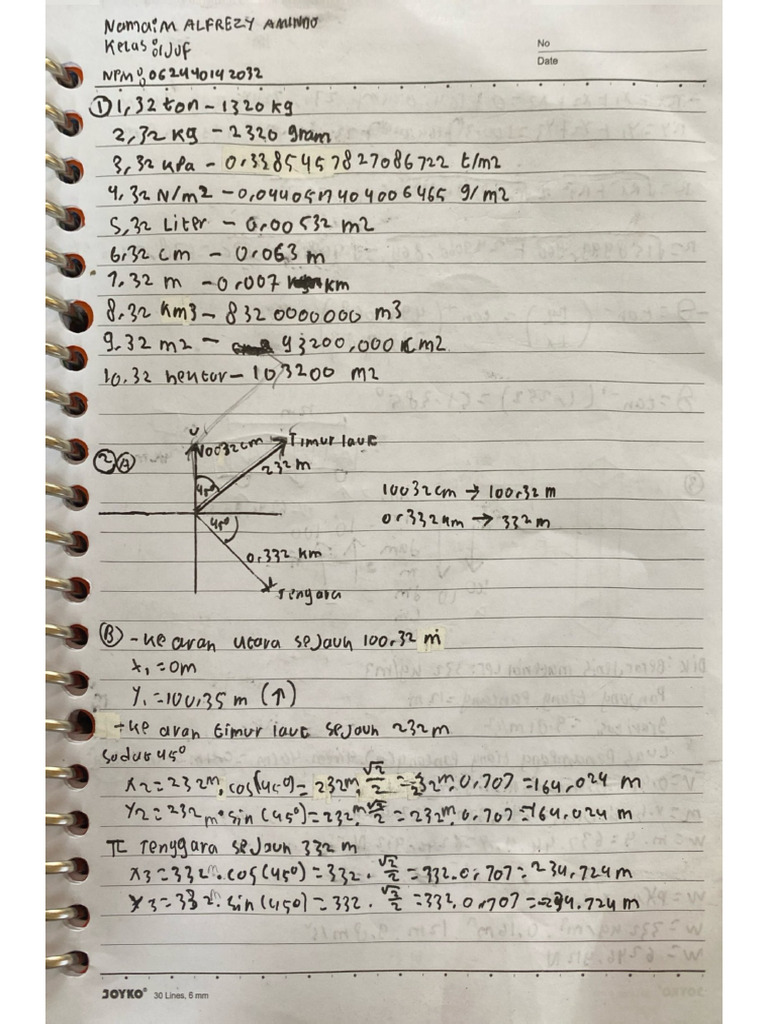 Nama : M ALFREZY AMINDO
Kelas : 1JUF
NPM : 062440142032
No
Date
① 1,32 ton - 1320 kg
2,32 kg - 2320 gram
3,32 kpa - 0.3385457827086722 t/m2
4.32 N/m2 - 0,0440517404006465 g/m2
5,32 Liter - 0,00532 m2
6.32 cm - 0.063 m
7.32 m - 0.007 km
8.32 km3 - 8320000000 m3
9.32 m2 - 93200,000 cm2
10.32 hektar - 103200 m2
② A
U
10032cm
Timur laut
232 m
45°
45°
0.332 km
Tenggara
10032cm → 100.32 m
0.332 km → 332 m
B - ke arah utara sejauh 100.32 m
x₁ = 0m
Y₁ = 100,35 m (↑)
- ke arah timur laut sejauh 232 m
Sudut 45°
x2 = 232m . cos(45°) = 232m . √2/2 = 232m . 0.707 = 164,024 m
Y2 = 232m . sin (45°) = 232m . √2/2 = 232m . 0.707 = 164.024 m
Tenggara sejauh 332 m
x3 = 332m . cos(45°) = 332 . √2/2 = 332.0,707 = 234,724 m
Y3 = 332m . sin(45°) = 332 . √2/2 = 332.0,707 = -234.724 m
JOYKO® 30 Lines, 6 mm